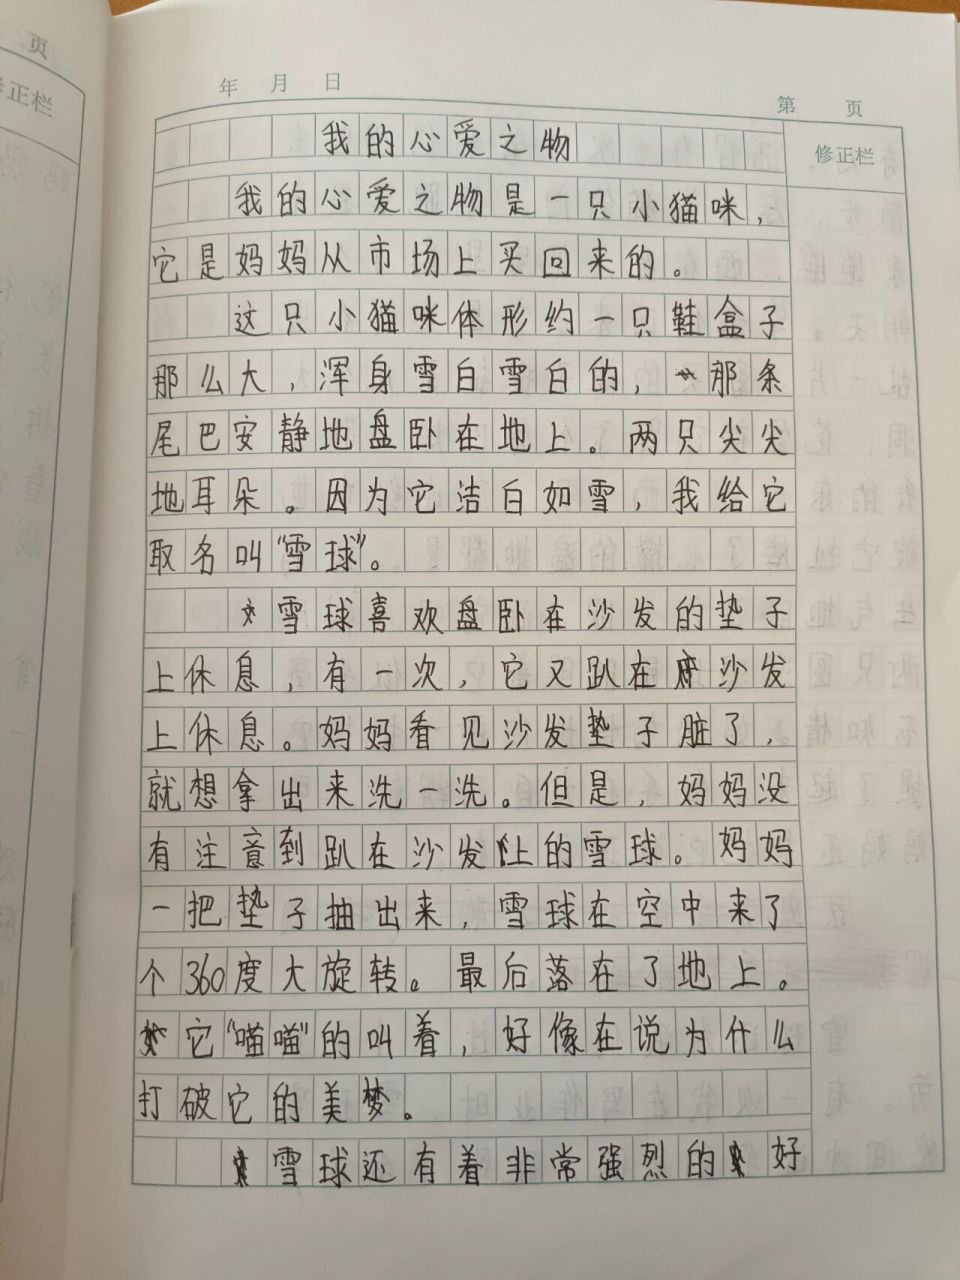 页
修正栏
年 月 日
第 页
修正栏
我的心爱之物
我的心爱之物是一只小猫咪，
它是妈妈从市场上买回来的。
这只小猫咪体形约一只鞋盒子
那么大，浑身雪白雪白的，那条
尾巴安静地盘卧在地上。两只尖尖
地耳朵。因为它洁白如雪，我给它
取名叫“雪球”。
雪球喜欢盘卧在沙发的垫子
上休息，有一次，它又趴在沙发
上休息。妈妈看见沙发垫子脏了，
就想拿出来洗一洗。但是，妈妈没
有注意到趴在沙发上的雪球。妈妈
一把垫子抽出来，雪球在空中来了
个360度大旋转。最后落在了地上。
它“喵喵”的叫着，好像在说为什么
打破它的美梦。
雪球还有着非常强烈的好